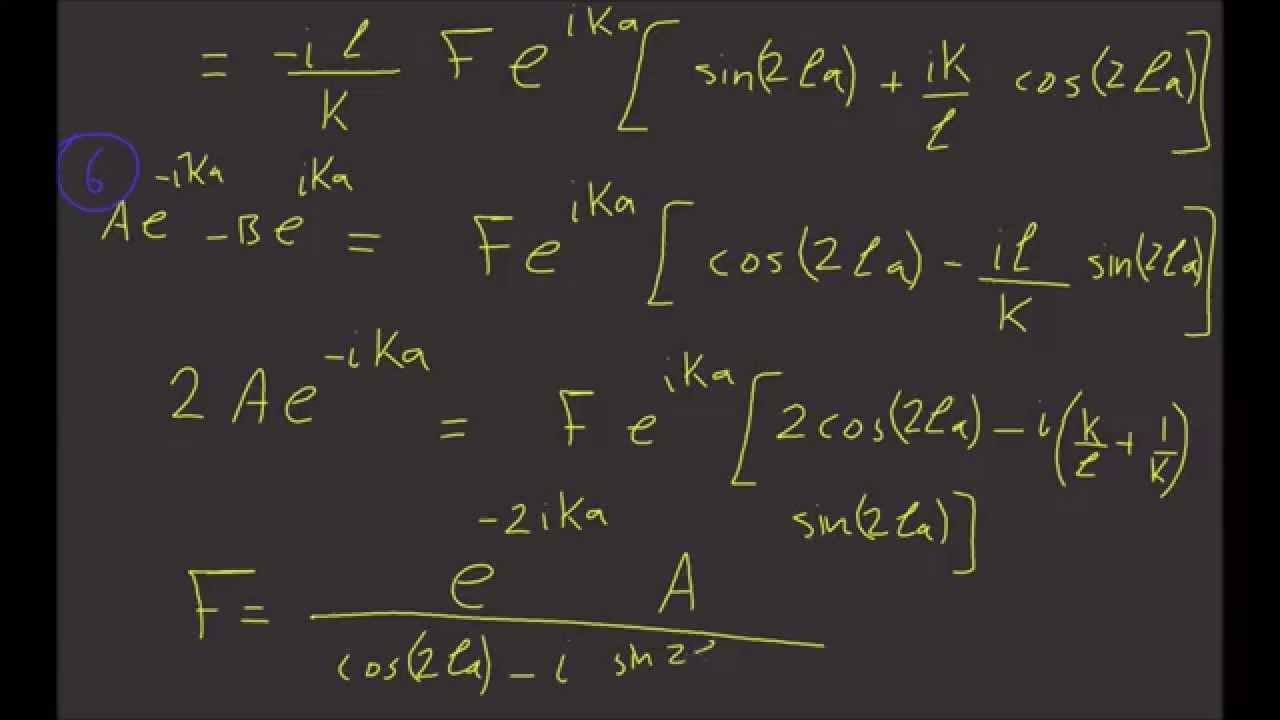 = -il/K F e^{iKa} [ sin(2la) + iK/l cos(2la) ]
6
Ae^{-iKa} - Be^{iKa} = F e^{iKa} [ cos(2la) - il/K sin(2la) ]
2 A e^{-iKa} = F e^{iKa} [ 2cos(2la) - i ( K/l + 1/K )
sin(2la) ]
F = e^{-2iKa} A / cos(2la) - i sin 2